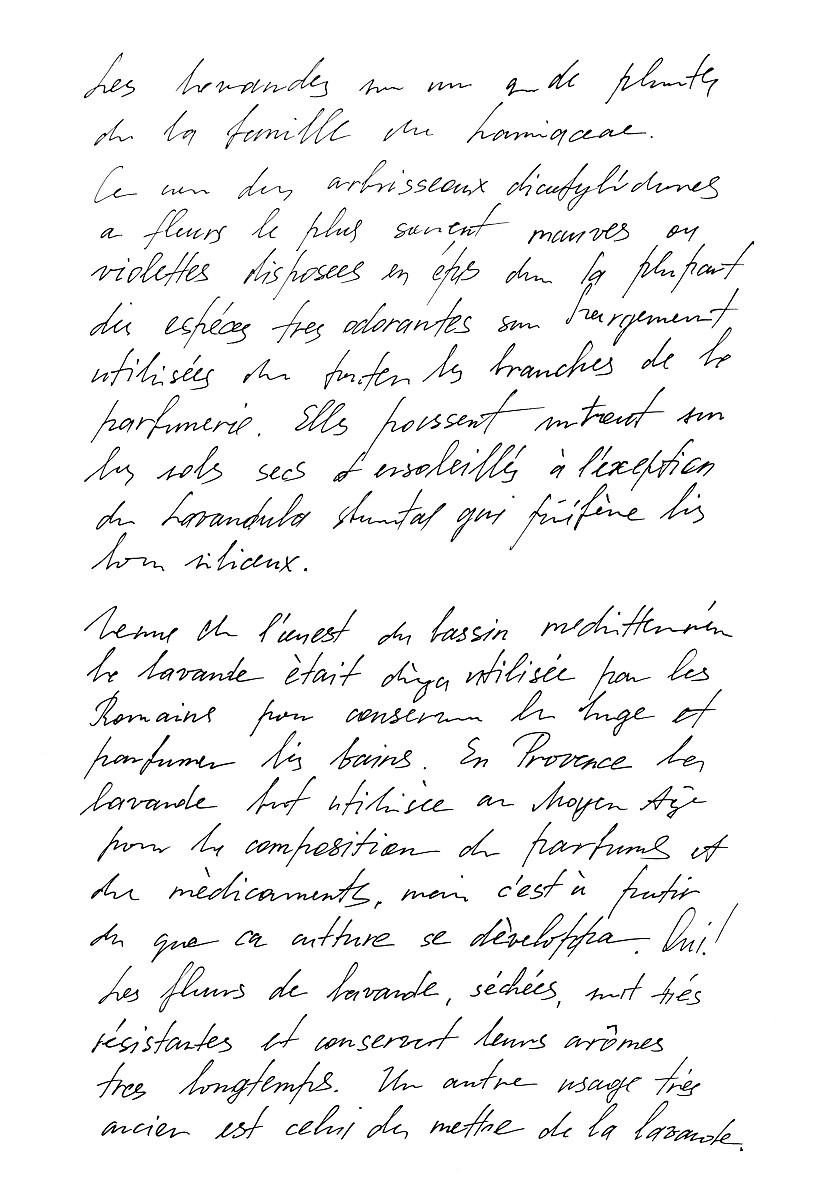 Les lavandes un de plantes
de la famille de Lamiaceae.
Ce des arbrisseaux dicotylédones
a fleurs le plus souvent mauves ou
violettes disposées en épis la plupart
des espèces tres odorantes son largement
utilisées les branches de la
parfumerie. Elles poussent sur
les sols secs et ensoleillés à l'exeption
du Lavandula qui préfère les
silicieux.
Venue de l'ouest du bassin
la lavande ètait dèja utilisée par les
Romains pour conserver le linge et
parfumer les bains. En Provence la
lavande fut utilisèe au Moyen Age
pour la composition de parfums et
de mèdicaments, mais c'est à
du que ca culture se dèveloppa. Oui!
Les fleurs de lavande, séchées, sont trés
résistantes et conservent leurs arômes
tres longtemps. Un autre usage trés
ancien est celui de mettre de la lavande.